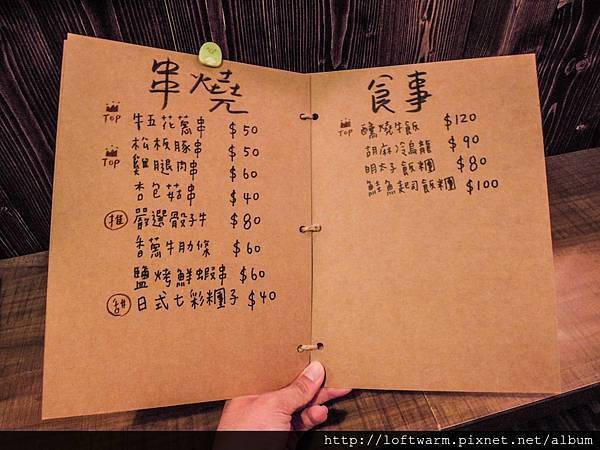 串燒
TOP 牛五花蔥串 $50
松板豚串 $50
TOP 雞腿肉串 $60
杏包菇串 $40
推 嚴選骰子牛 $80
香蔥牛肋條 $60
鹽烤鮮蝦串 $60
甜 日式七彩糰子 $40
食事
TOP 醺燒牛飯 $120
胡麻冷烏龍 $90
明太子飯糰 $80
鮭魚起司飯糰 $100
http://loftwarm.pixnet.net/album